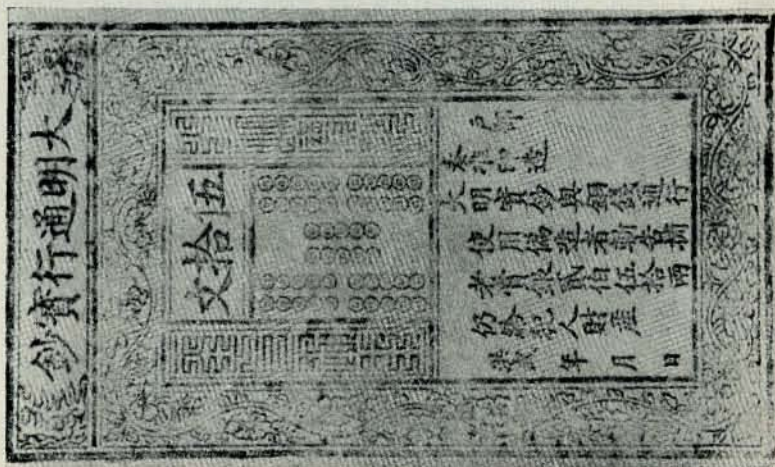 大明通行寶鈔
伍拾文
戶部
奏准印造
大明寶鈔與銅錢通行
使用偽造者斬告捕
者賞銀貳佰伍拾兩
仍給犯人財產
洪武 年 月 日